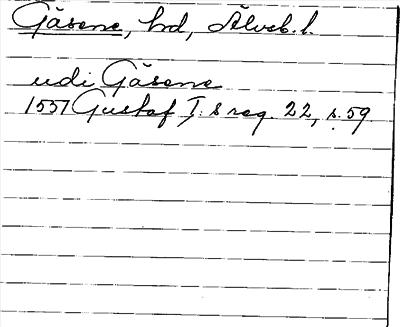 Gäsene, hd, Älvsb. l.
udi Gäsene
1557 Gustaf I:s reg. 22, s. 59.